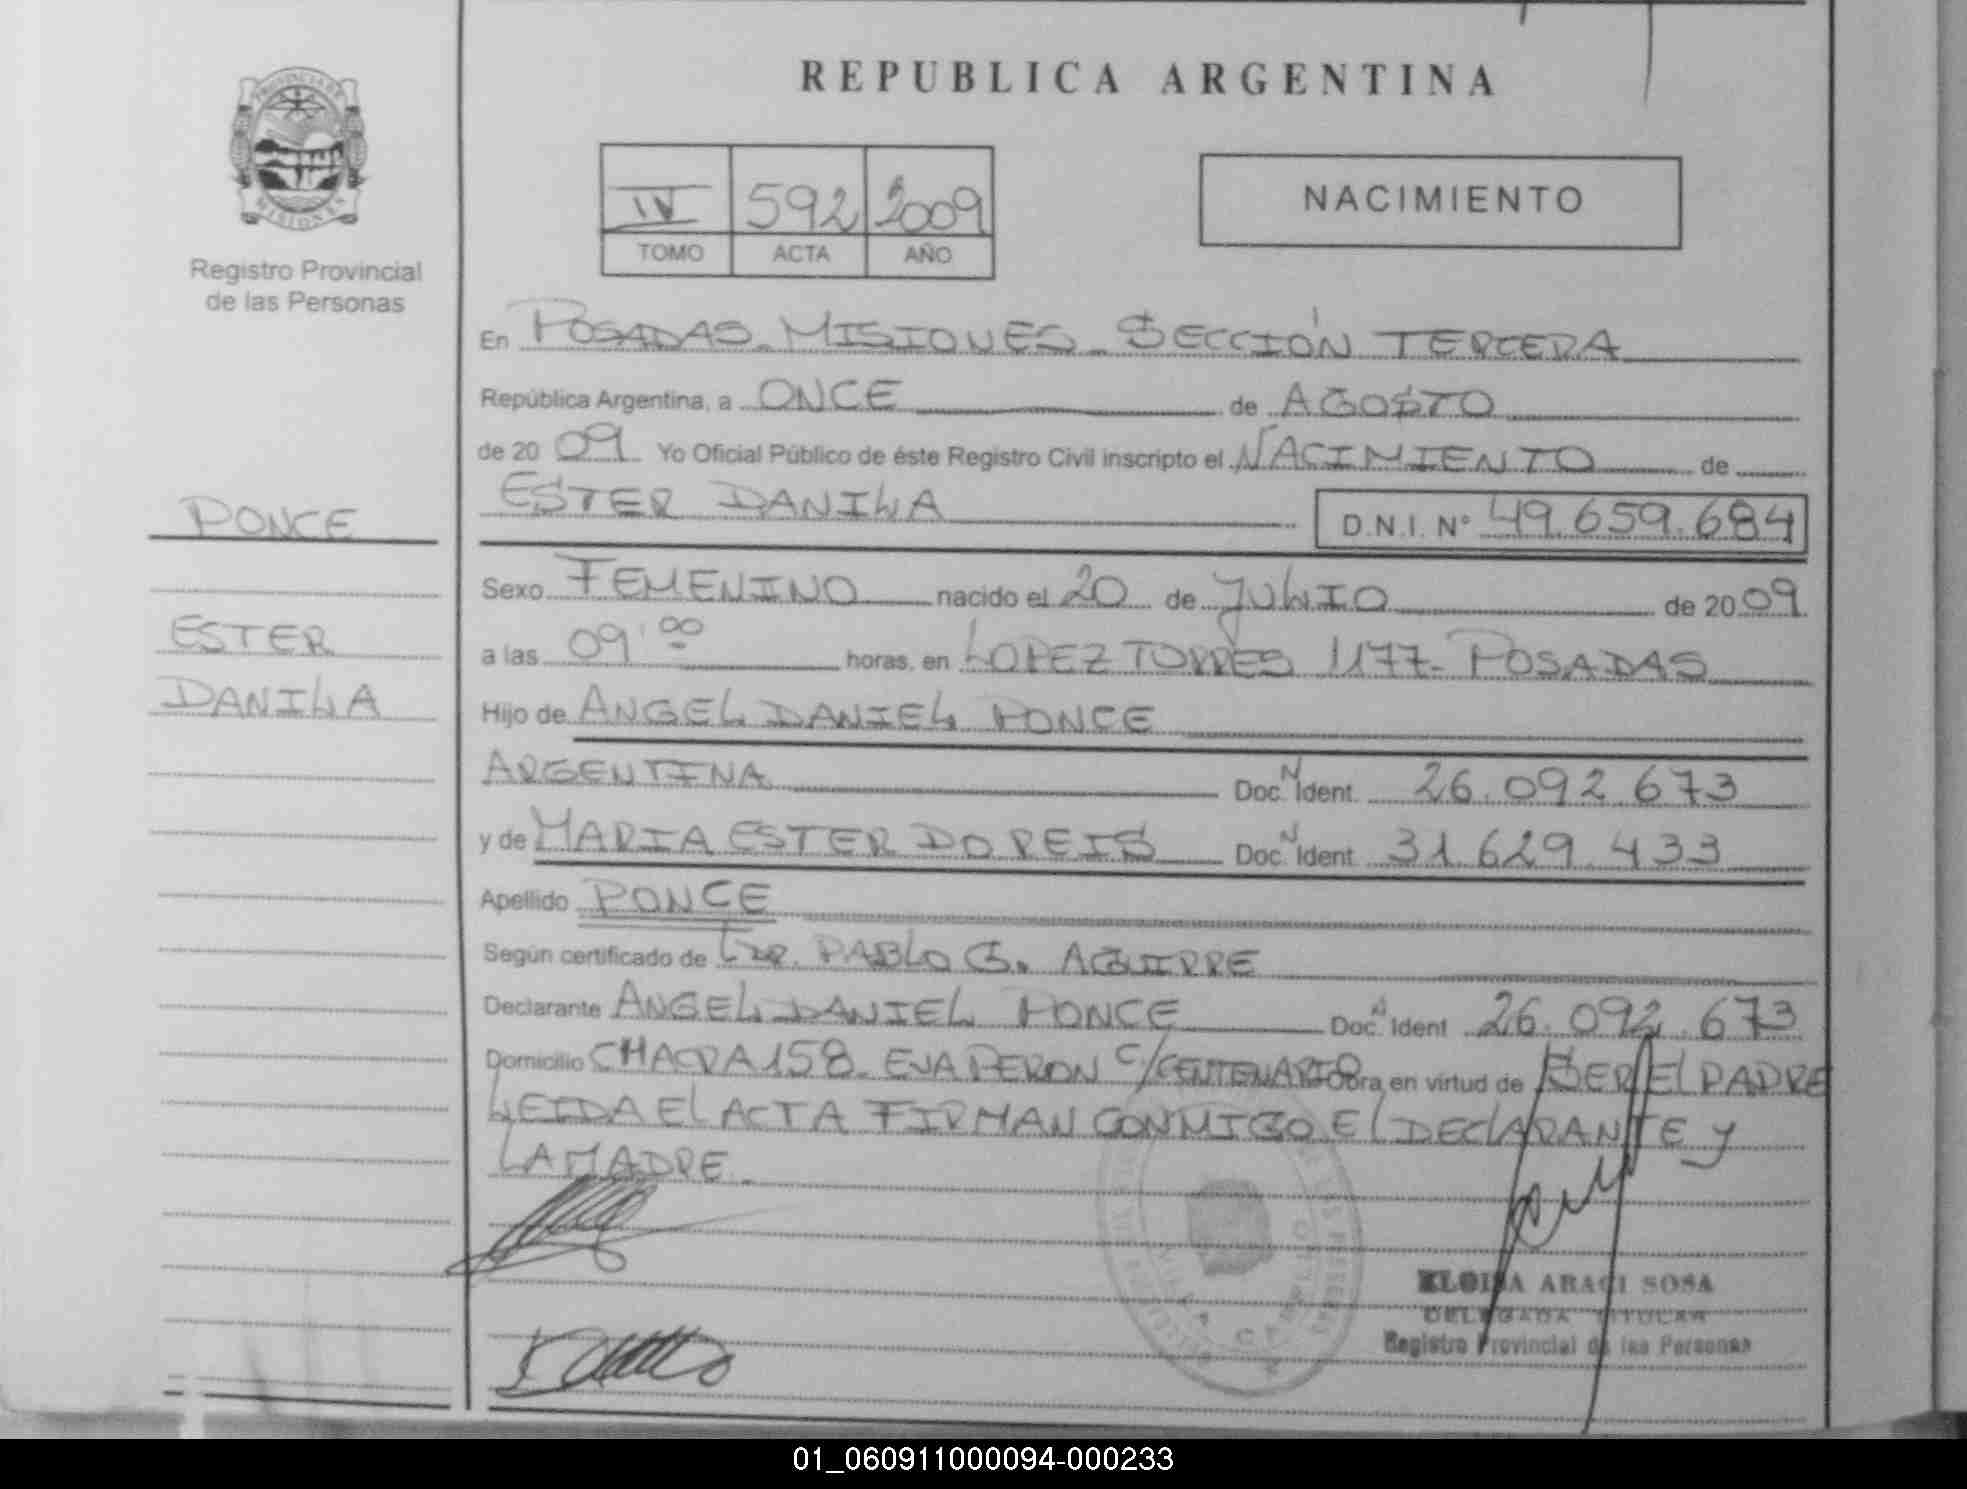 REPUBLICA ARGENTINA
PROVINCIA DE
MISIONES
Registro Provincial
de las Personas
IV 592 2009
TOMO ACTA AÑO
NACIMIENTO
En POSADAS - MISIONES - SECCIÓN TERCERA
República Argentina, a ONCE de AGOSTO
de 20 09 Yo Oficial Público de éste Registro Civil inscripto el NACIMIENTO de
ESTER DANILA D.N.I. Nº 49.659.684
PONCE
ESTER
DANILA
Sexo FEMENINO nacido el 20 de JULIO de 20 09
a las 09:00 horas, en LOPEZ TORRES 1177- POSADAS
Hijo de ANGEL DANIEL PONCE
ARGENTINA Doc. N Ident. 26.092.673
y de MARIA ESTER DO REIS Doc. N Ident. 31.629.433
Apellido PONCE
Según certificado de DR. PABLO G. AGUIRRE
Declarante ANGEL DANIEL PONCE Doc. N Ident 26.092.673
Domicilio CHACRA 158 - EVA PERON C/CENTENARIO Obra en virtud de SER EL PADRE
LEIDA EL ACTA FIRMAN CONMIGO EL DECLARANTE Y
LA MADRE.
ELOISA ARACI SOSA
DELEGADA TITULAR
Registro Provincial de las Personas
01_060911000094-000233